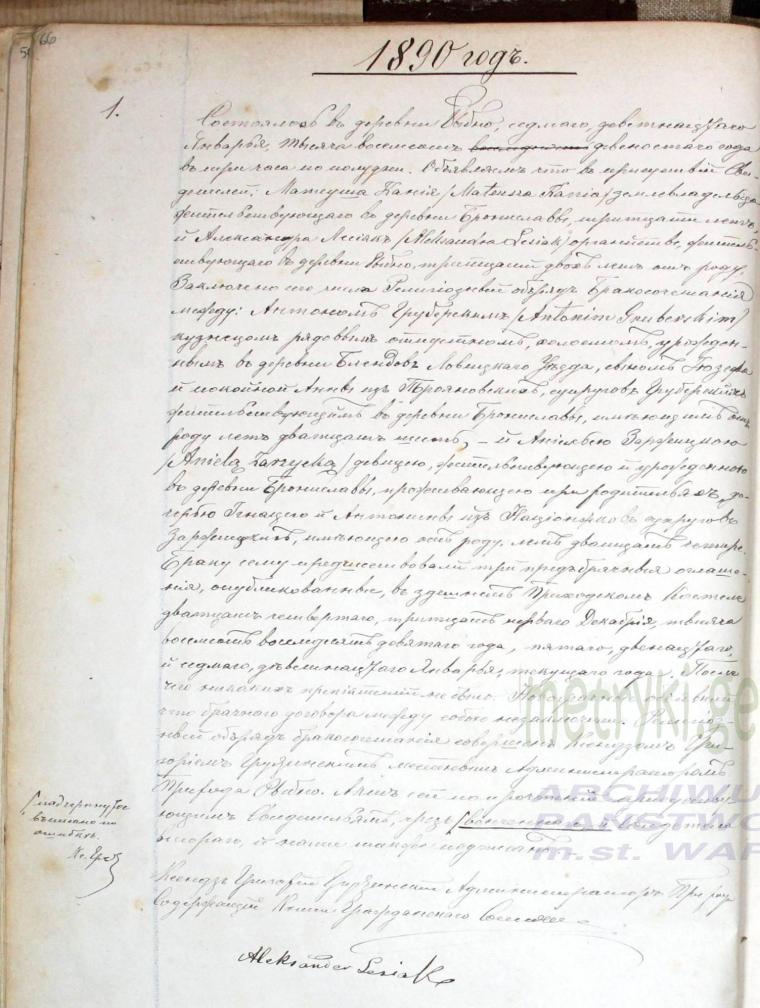 66
1890 годъ.
1.
Состоялось въ деревни Рыбно, седмаго, девятнадцатаго
Января, тысяча восемсотъ девяностаго года
въ три часа по полудни. Объявляемъ что въ присутствіи Сви-
детелей: Матеуша Каня /Mateusza Kania/ землевладельца
жительствующаго въ деревни Брониславве, тритцати летъ,
й Александра Лесіакъ /Aleksandra Lesiak/ органисте, житель-
ствующаго въ деревни Рыбно, тритцати двохъ летъ отъ роду,
Заключено сего числа Религіозный обрядъ Бракосочетанія
между: Антономъ Груберскимъ /Antonim Gruberskim/
кузнецомъ рядовымъ, холостомъ, урожден-
нымъ въ деревни Блендовъ Ловицкаго Уезда, сыномъ Іозефа
й покойной Анны изъ Трояновскихъ, супруговъ Груберскихъ
жительствующимъ въ деревни Брониславы, имъющимъ отъ
роду летъ дватцать шесть, – й Аніелью Заржицкою
/Aniela Zarzycka/ девицею, жительствующею й урожденною
въ деревни Брониславы, проживающею при родителяхъ, до-
черью Игнацего й Антонины изъ супруговъ
Заржицкихъ, имъющею отъ роду летъ дватцать четыре.
Браку сему предшествовали три предбрачныя оглаше-
нія, опубликованные, въ здешнемъ Приходскомъ Костеле
дватцать четвертаго, тритцать перваго Декабрія, тысяча
восемсотъ восемдесятъ девятаго года, пятаго, двенадцатаго,
й седмаго, девятнадцатаго Января, текущаго года. После
чего никакихъ препятствій не было. Новобрачные объявили
что брачнаго договора между собою незаключили. Религіоз-
ный обрядъ бракосочетанія совершенъ Ксендзомъ Гри-
горіемъ местнымъ Администраторомъ
Прихода Рыбно. Актъ сей по прочтеніи присутству-
ющимъ Свидетелямъ, чрезъ свидетеля
втораго, й нами также подписано.
Ксендзъ Григорій Администраторъ Прихода
Содержащій Книги Гражданскаго Состоянія
Aleksander Lesiak
надчеркнутое
въписано по
ошибке.
metryki.ge
ARCHIWU
PAŃSTWO
m.st. WAR